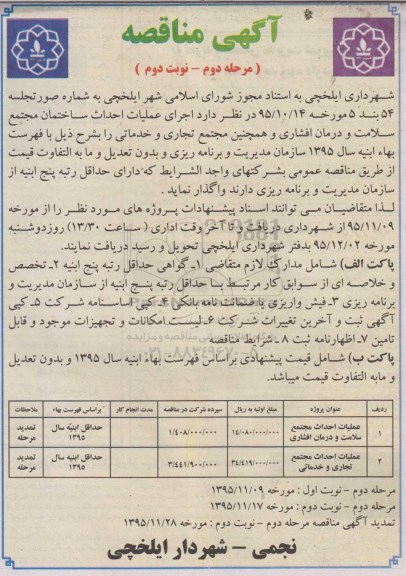 آگهی مناقصه
( مرحله دوم - نوبت دوم )
شهرداری ایلخچی به استناد مجوز شورای اسلامی شهر ایلخچی به شماره صورتجلسه
۵۴ بند ۵ مورخه ۹۵/۱۰/۱۴ در نظر دارد اجرای عملیات احداث ساختمان مجتمع
سلامت و درمان افشاری و همچنین مجتمع تجاری و خدماتی را بشرح ذیل با فهرست
بهاء ابنیه سال ۱۳۹۵ سازمان مدیریت و برنامه ریزی و بدون تعدیل و ما به التفاوت قیمت
از طریق مناقصه عمومی بشرکتهای واجد الشرایط که دارای حداقل رتبه پنج ابنیه از
سازمان مدیریت و برنامه ریزی دارند واگذار نماید .
لذا متقاضیان می توانند اسناد پیشنهادات پروژه های مورد نظر را از مورخه
۹۵/۱۱/۰۹ از شهرداری دریافت و تا آخر وقت اداری ( ساعت ۱۳/۳۰) روز دوشنبه
مورخه ۹۵/۱۲/۰۲ بدفتر شهرداری ایلخچی تحویل و رسید دریافت نمایند.
پاکت الف) شامل مدارک لازم متقاضی ۱-گواهی حداقل رتبه پنج ابنیه ۲-تخصص
و خلاصه ای از سوابق کار مرتبط با حداقل رتبه پنج ابنیه از سازمان مدیریت و
برنامه ریزی ۳-فیش واریزی یا ضمانت نامه بانکی ۴-کپی اساسنامه شرکت ۵-کپی
آگهی ثبت و آخرین تغییرات شرکت ۶-لیست امکانات و تجهیزات موجود و قابل
تامین ۷-اظهارنامه ثبت ۸-شرایط مناقصه
پاکت ب) شامل قیمت پیشنهادی براساس فهرست بهاء ابنیه سال ۱۳۹۵ و بدون تعدیل
و مابه التفاوت قیمت میباشد.
ردیف عنوان پروژه مبلغ اولیه به ریال سپرده شرکت در مناقصه مدت انجام کار براساس فهرست بهاء ملاحظات
۱ عملیات احداث مجتمع سلامت و درمان افشاری ۱۴/۰۸۰/۰۰۰/۰۰۰ ۱/۴۰۸/۰۰۰/۰۰۰ حداقل ابنیه سال ۱۳۹۵ تمدید مرحله
۲ عملیات احداث مجتمع تجاری و خدماتی ۳۴/۴۱۹/۰۰۰/۰۰۰ ۳/۴۴۱/۹۰۰/۰۰۰ حداقل ابنیه سال ۱۳۹۵ تمدید مرحله
مرحله دوم - نوبت اول : مورخه ۱۳۹۵/۱۱/۰۹
مرحله دوم - نوبت دوم : مورخه ۱۳۹۵/۱۱/۱۷
تمدید آگهی مناقصه مرحله دوم - نوبت دوم : مورخه ۱۳۹۵/۱۱/۲۸
نجمی - شهردار ایلخچی